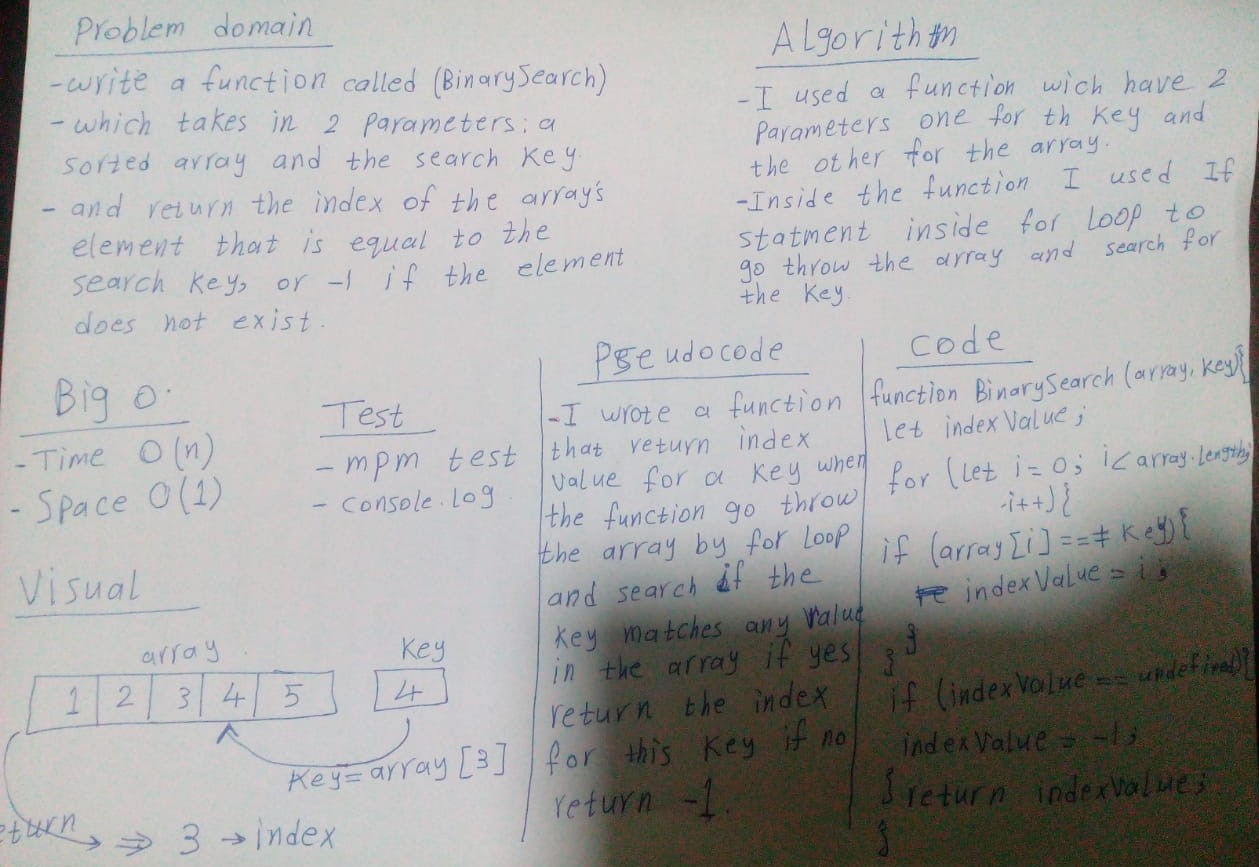 Problem domain
-write a function called (BinarySearch)
- which takes in 2 Parameters: a
sorted array and the search Key.
- and return the index of the array's
element that is equal to the
search Key, or -1 if the element
does not exist.
Algorithm
-I used a function wich have 2
Parameters one for th Key and
the other for the array.
-Inside the function I used If
statment inside for Loop to
go throw the array and search for
the Key.
Big O:
-Time O(n)
- Space O(1)
Test
- mpm test
- console.log
Visual
array
Key
1 2 3 4 5
4
Key=array [3]
eturn
⇒ 3 → index
Pseudocode
-I wrote a function
that return index
value for a Key when
the function go throw
the array by for Loop
and search if the
Key matches any Value
in the array if yes
return the index
for this Key if no
return -1.
Code
function BinarySearch (array, Key){
Let indexValue;
for (Let i=0; i<array.length;
i++){
if (array[i]=== Key){
indexValue = i;
}
}
if (indexValue == undefined){
indexValue = -1;
} return indexValue;
}